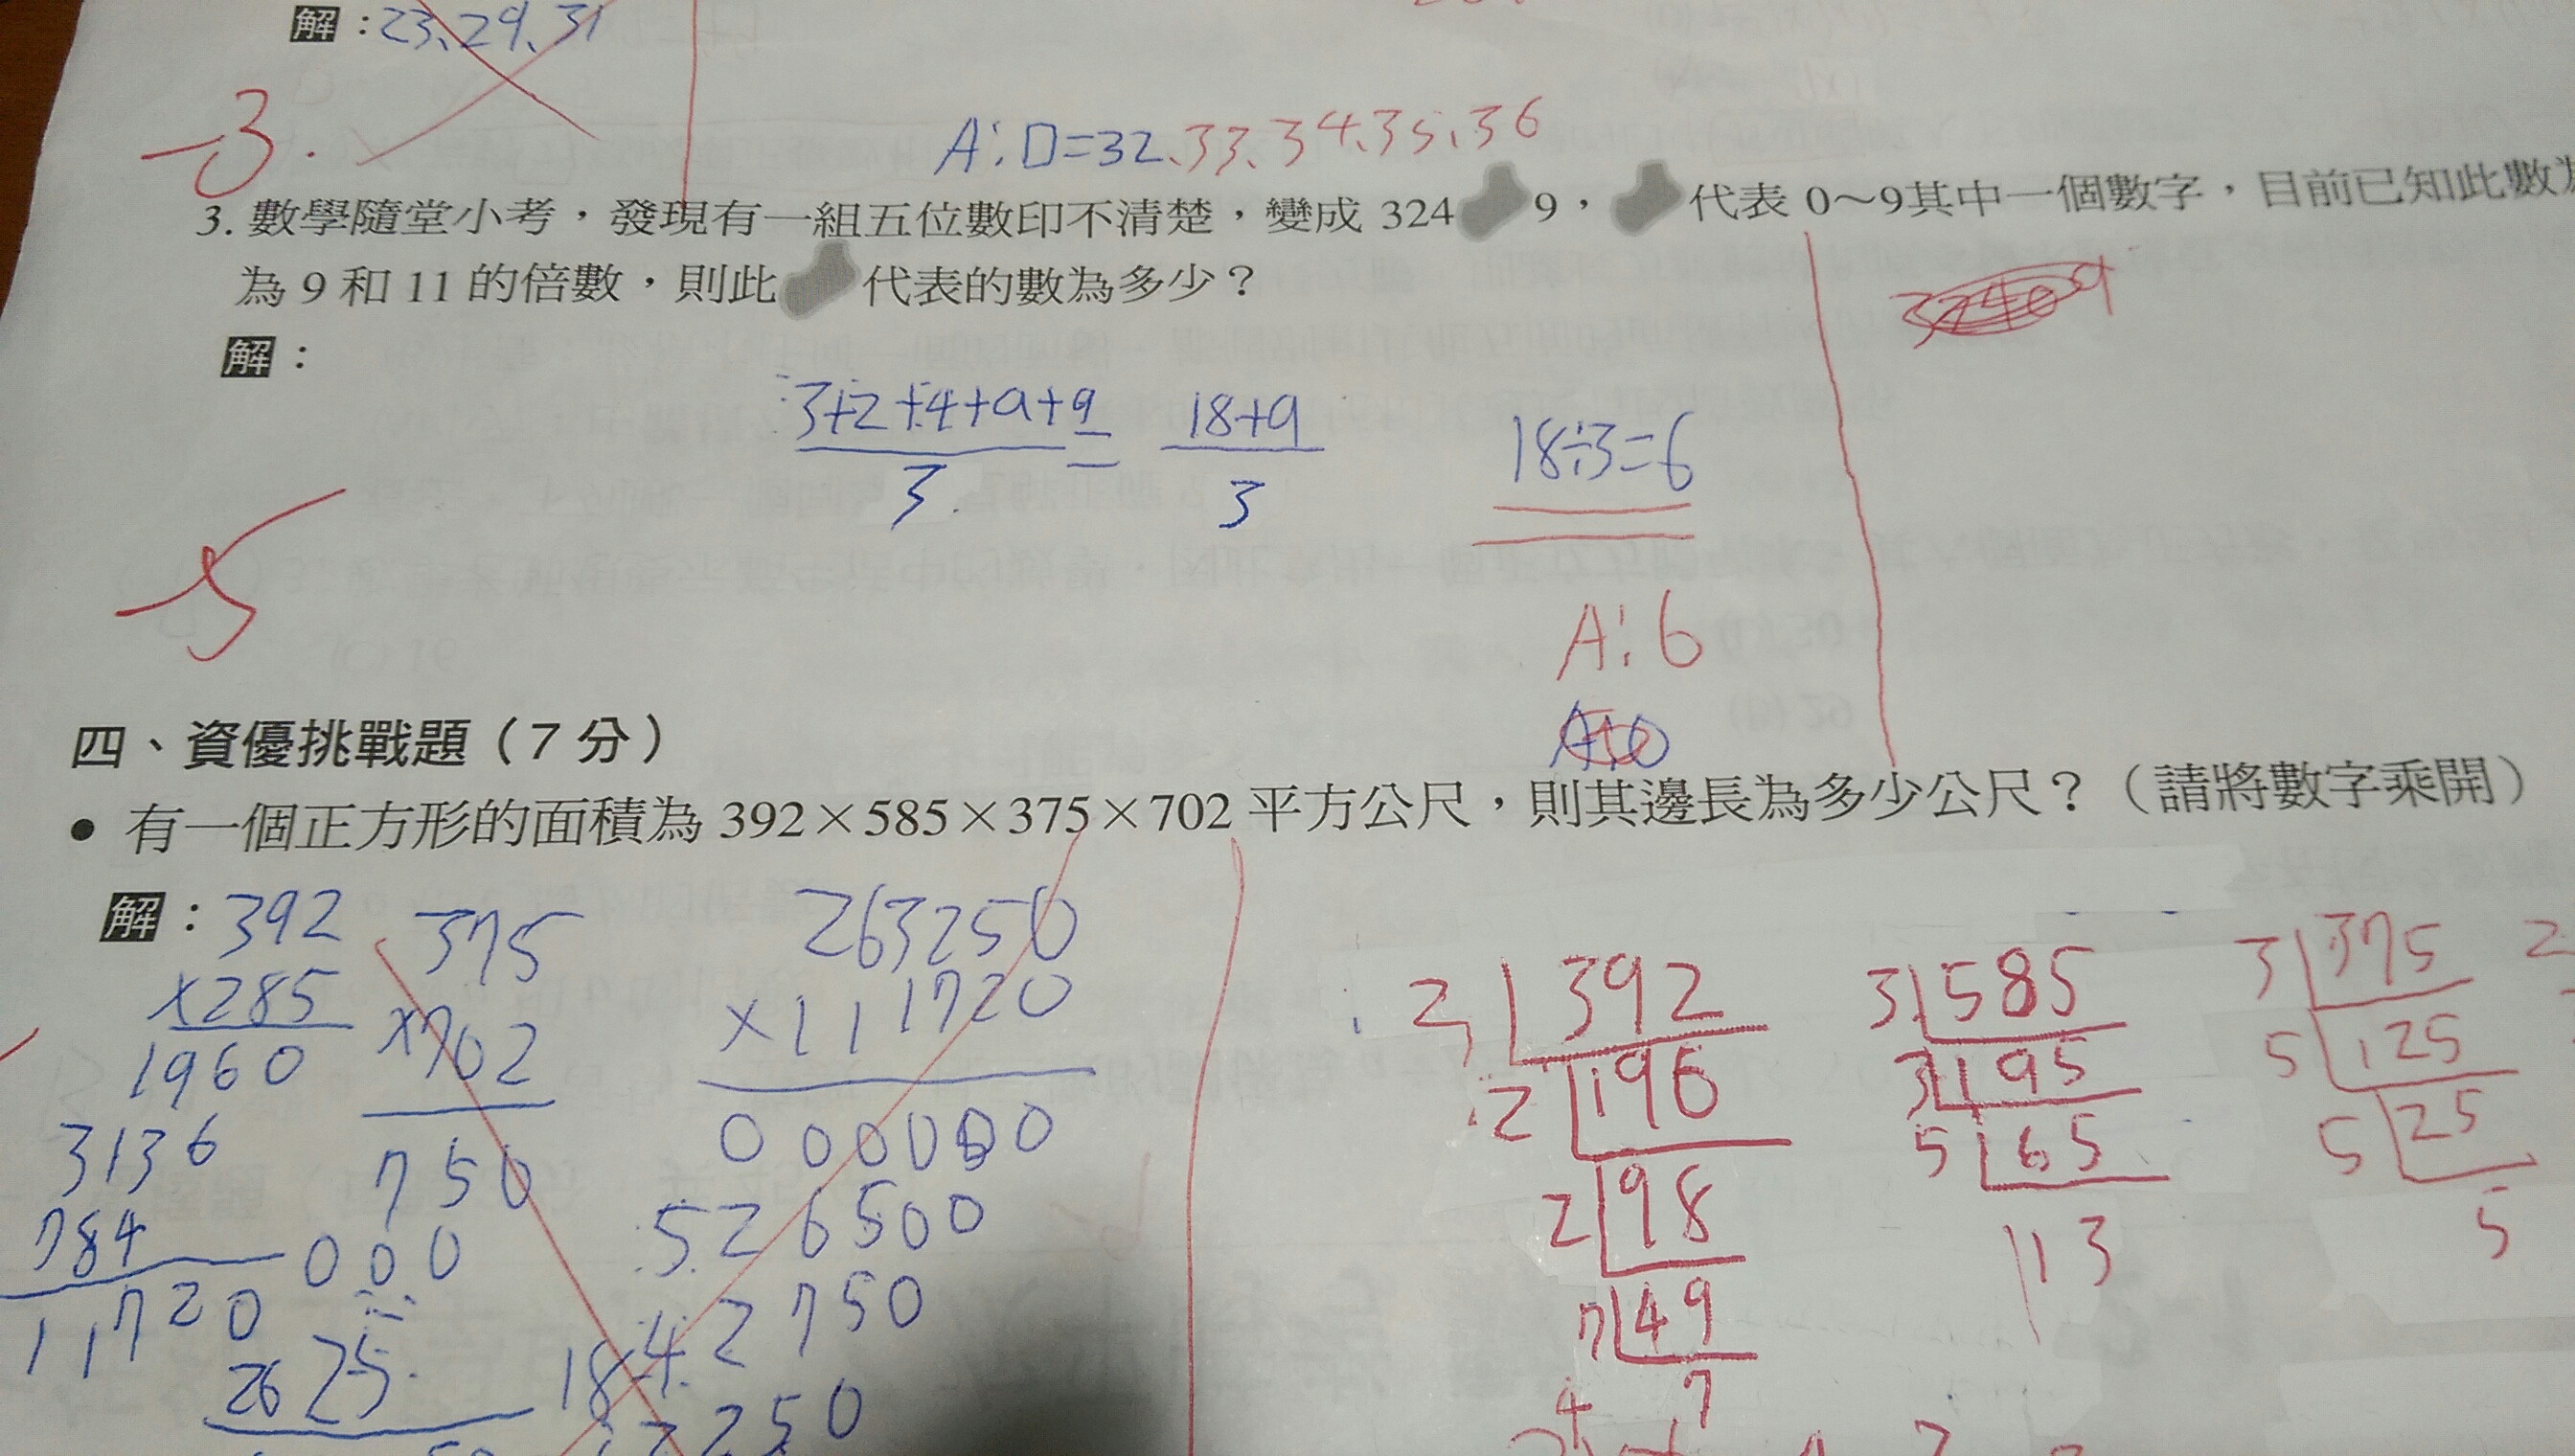 解：23、29、31
-3.
A：□=32、33、34、35、36
3. 數學隨堂小考，發現有一組五位數印不清楚，變成 324 9， 代表 0～9其中一個數字，目前已知此數
為 9 和 11 的倍數，則此 代表的數為多少？
解：
3+2+4+a+9/3 = 18+a/3 18÷3=6
-5
A：6
四、資優挑戰題（7 分）
● 有一個正方形的面積為 392×585×375×702 平方公尺，則其邊長為多少公尺？（請將數字乘開）
解：392 375 263250 2 392 3 585 3 375 2
×285 ×702 ×111720 2 196 3 195 5 125
1960 750 000000 2 98 5 65 5 25
3136 000 526500 7 49 13 5
784 2625 1842750 7
111720